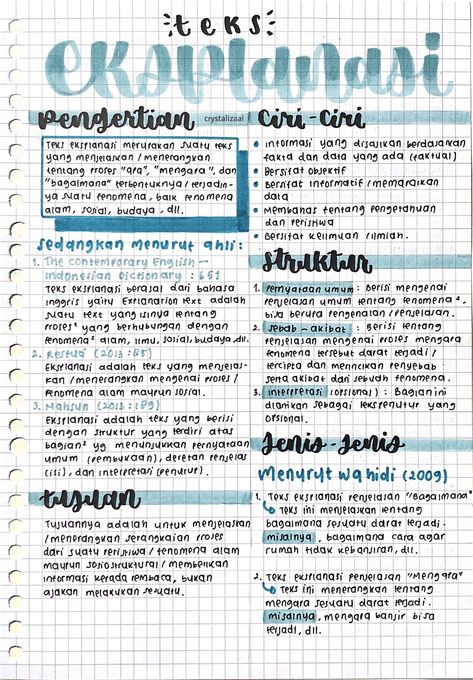 teks
eksplanasi
pengertian
crystalizaal
Teks eksplanasi merupakan suatu teks
yang menjelaskan / menerangkan
tentang proses "apa", "mengapa", dan
"bagaimana" terbentuknya / terjadin-
ya suatu fenomena, baik fenomena
alam, sosial, budaya, dll.
sedangkan menurut ahli :
1. The contemporary English–
Indonesian Dictionary : 651
Teks eksplanasi berasal dari bahasa
inggris yaitu Explanation text adalah
suatu text yang isinya tentang
proses² yang berhubungan dengan
fenomena² alam, ilmu, sosial, budaya, dll.
2. Restuti (2013 : 85)
Eksplanasi adalah teks yang menjelas-
kan / menerangkan mengenai proses /
fenomena alam maupun sosial.
3. Mahsun (2013 : 189)
Eksplanasi adalah teks yang berisi
dengan struktur yang terdiri atas
bagian² yg menunjukkan pernyataan
umum (pembukaan), deretan penjelas
(isi), dan interpretasi (penutup).
tujuan
Tujuannya adalah untuk menjelaskan
/ menerangkan serangkaian proses
dari suatu peristiwa / fenomena alam
maupun sosiostruktural / memberikan
informasi kepada pembaca, bukan
ajakan melakukan sesuatu.
Ciri-Ciri
• informasi yang disajikan berdasarkan
fakta dan data yang ada (faktual)
• Bersifat objektif
• Bersifat informatif / memaparkan
data
• Membahas tentang pengetahuan
dan peristiwa
• Bersifat keilmuan / ilmiah.
struktur
1. Pernyataan umum : berisi mengenai
penjelasan umum tentang fenomena²,
bisa berupa pengenalan / penjelasan.
2. sebab - akibat : berisi tentang
penjelasan mengenai proses mengapa
fenomena tersebut dapat terjadi /
tercipta dan merincikan penyebab
serta akibat dari sebuah fenomena.
3. interpretasi (opsional) : Bagian ini
diartikan sebagai teks penutup yang
opsional.
Jenis-Jenis
Menurut wahidi (2009)
1. Teks eksplanasi penjelasan "Bagaimana"
↳ teks ini menjelaskan tentang
bagaimana sesuatu dapat terjadi.
misalnya, bagaimana cara agar
rumah tidak kebanjiran, dll.
2. Teks eksplanasi penjelasan "Mengapa"
↳ Teks ini menerangkan tentang
mengapa sesuatu dapat terjadi.
misalnya, mengapa banjir bisa
terjadi, dll.